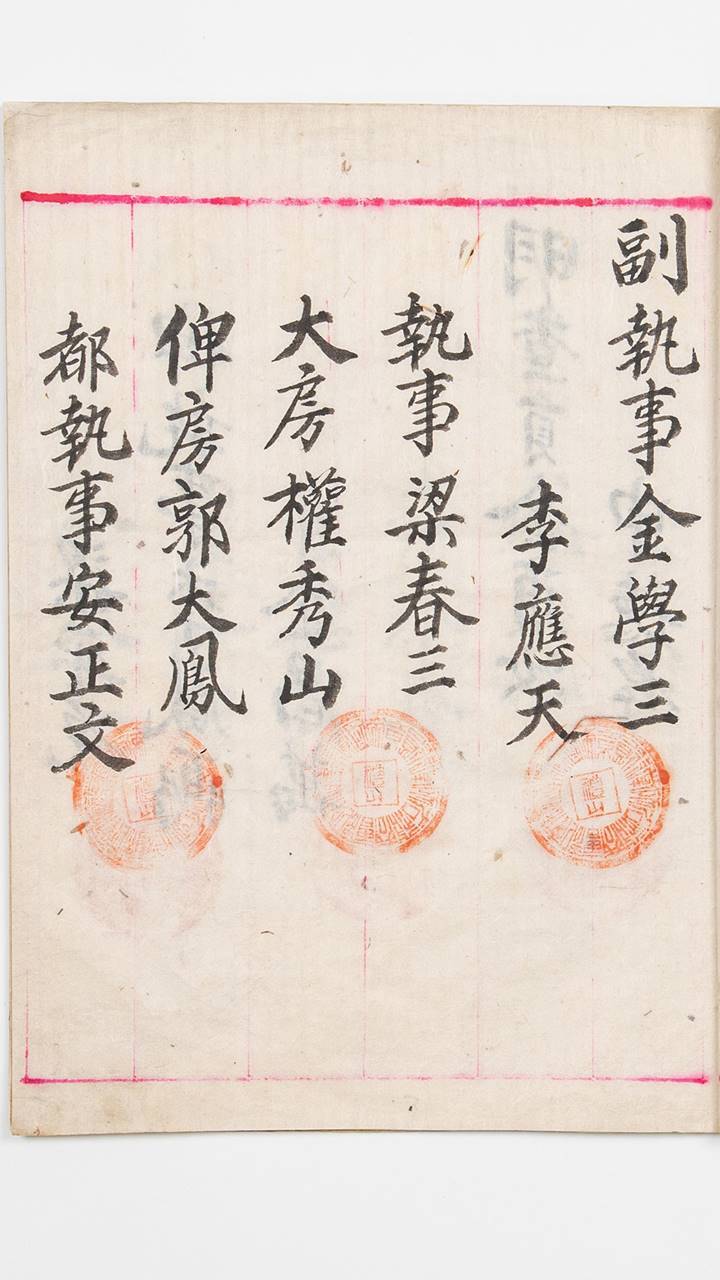 副執事金學三
李應天
執事梁春三
大房權秀山
俾房郭大鳳
都執事安正文